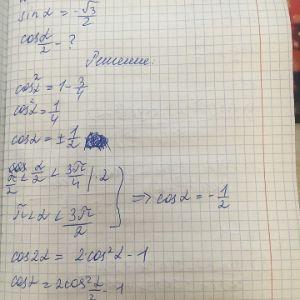 sin α = -√3/2
cos α/2 - ?
Решение.
cos²α = 1 - 3/4
cos²α = 1/4
cos α = ± 1/2
π/2 < α/2 < 3π/4 | · 2
π < α < 3π/2
⇒ cos α = - 1/2
cos 2α = 2 · cos² α - 1
cos α = 2 cos² α/2 - 1